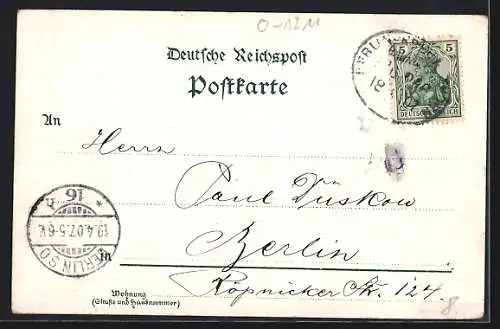 0-12 11
Deutsche Reichspost
Postkarte
5 5
DEUTSCHES REICH
18
An
Herrn
Paul Düskow
16
19.4.07.5-6V.
BERLIN SO
in Berlin
Wohnung
(Straße und Hausnummer)
Köpnicker Str. 124.
8